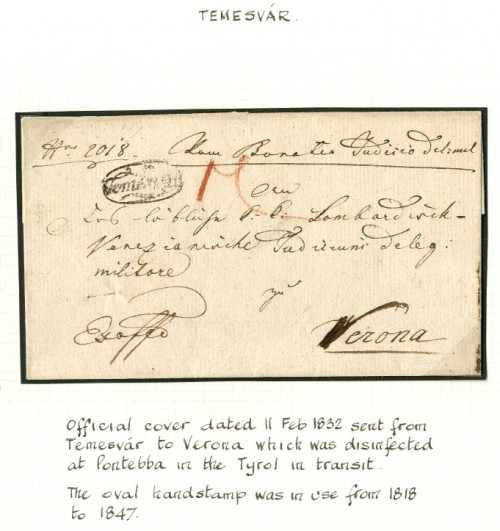 TEMESVÁR.
Nro 2018. Vom Banater Judicio del: mil
Temesvár
An
Das löbliche k. k. Lombardisch-
Venezianische Judicium deleg:
militare
zu
Exoffo Verona
Official cover dated 11 Feb 1832 sent from
Temesvár to Verona which was disinfected
at Pontebba in the Tyrol in transit.
The oval handstamp was in use from 1818
to 1847.